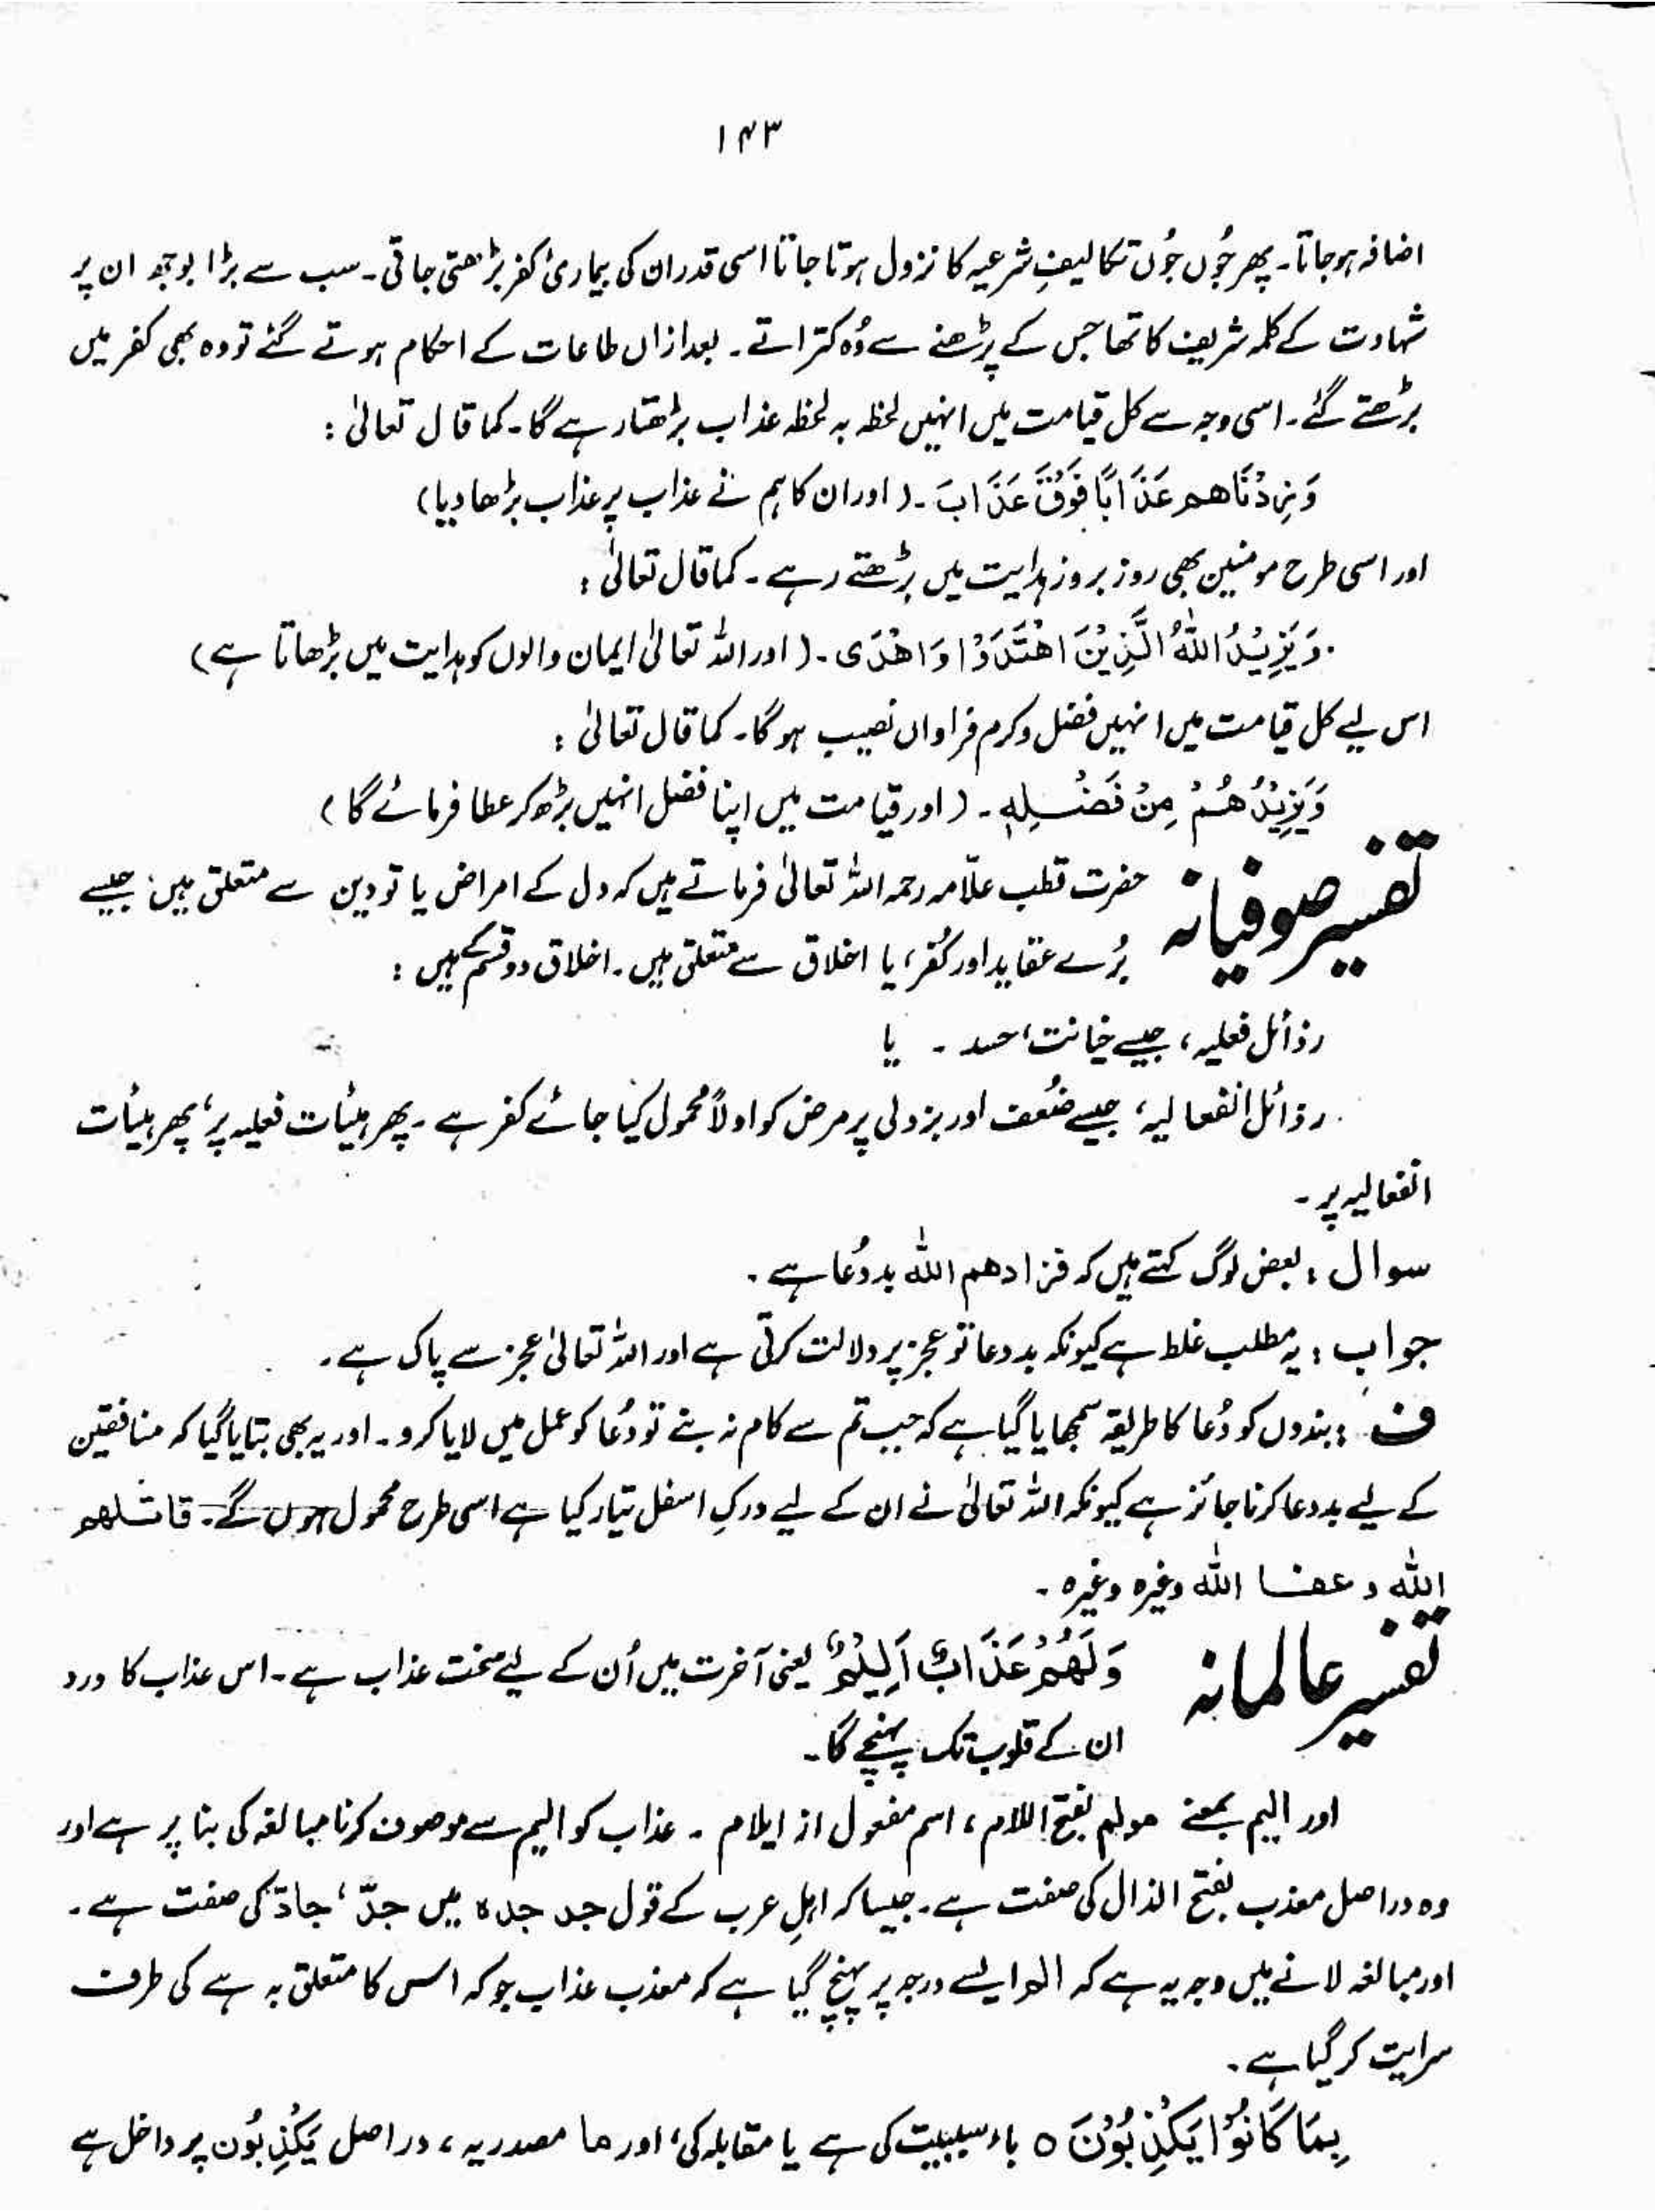 ۱۴۳
اضافہ ہوجاتا۔ پھر جُوں جُوں تکالیفِ شرعیہ کا نزول ہوتا جاتا اسی قدر ان کی بیماریٔ کفر بڑھتی جاتی۔ سب سے بڑا بوجھ ان پر
شہادت کے کلمہ شریف کا تھا جس کے پڑھنے سے وُہ کتراتے۔ بعد ازاں طاعات کے احکام ہوتے گئے تو وہ بھی کفر میں
بڑھتے گئے۔ اسی وجہ سے کل قیامت میں انہیں لحظہ بہ لحظہ عذاب بڑھتا رہے گا۔ کما قال تعالیٰ :
وَزِدْنَاهم عَذَابًا فَوْقَ عَذَابَ۔ (اور ان کا ہم نے عذاب پر عذاب بڑھا دیا)
اور اسی طرح مومنین بھی روز بروز ہدایت میں بڑھتے رہے۔ کما قال تعالیٰ :
وَيَزِيْدُ اللّٰهُ الَّذِيْنَ اهْتَدَوْا وَاهْدَى۔ (اور اللہ تعالیٰ ایمان والوں کو ہدایت میں بڑھاتا ہے)
اس لیے کل قیامت میں انہیں فضل و کرم فراواں نصیب ہوگا۔ کما قال تعالیٰ :
وَيَزِيْدُهُمْ مِنْ فَضْلِهٖ۔ (اور قیامت میں اپنا فضل انہیں بڑھ کر عطا فرمائے گا)
تفسیر صوفیانہ حضرت قطب علّامہ رحمہ اللہ تعالیٰ فرماتے ہیں کہ دل کے امراض یا تو دین سے متعلق ہیں، جیسے
بُرے عقاید اور کُفر، یا اخلاق سے متعلق ہیں۔ اخلاق دو قسم کے ہیں :
رذائل فعلیہ، جیسے خیانت، حسد۔ یا
رذائل انفعالیہ، جیسے ضُعف اور بزدلی پر مرض کو اولاً محمول کیا جائے کفر ہے۔ پھر ہیئات فعلیہ پر، پھر ہیئات
انفعالیہ پر۔
سوال : بعض لوگ کہتے ہیں کہ فزادهم اللّٰه بددُعا ہے۔
جواب : یہ مطلب غلط ہے کیونکہ بددعا تو عجز پر دلالت کرتی ہے اور اللہ تعالیٰ عجز سے پاک ہے۔
ف : بندوں کو دُعا کا طریقہ سمجھایا گیا ہے کہ جب تم سے کام نہ بنے تو دُعا کو عمل میں لایا کرو۔ اور یہ بھی بتایا گیا کہ منافقین
کے لیے بددعا کرنا جائز ہے کیونکہ اللہ تعالیٰ نے ان کے لیے درکِ اسفل تیار کیا ہے اسی طرح محمول ہوں گے۔ قاتلهم
اللّٰه و عفا اللّٰه وغیرہ وغیرہ۔
تفسیر عالمانہ وَلَهُمْ عَذَابٌ اَلِيْمٌ یعنی آخرت میں اُن کے لیے سخت عذاب ہے۔ اس عذاب کا ورد
ان کے قلوب تک پہنچے گا۔
اور الیم بمعنے مولم بفتح اللام، اسم مفعول از ایلام۔ عذاب کو الیم سے موصوف کرنا مبالغہ کی بنا پر ہے اور
وہ دراصل معذب بفتح الذال کی صفت ہے۔ جیسا کہ اہلِ عرب کے قول جد جدہ میں جدّ، جادّ کی صفت ہے۔
اور مبالغہ لانے میں وجہ یہ ہے کہ الم ایسے درجہ پر پہنچ گیا ہے کہ معذب عذاب جو کہ اس کا متعلق بہ ہے کی طرف
سرایت کر گیا ہے۔
بِمَا كَانُوْا يَكْذِبُوْنَ ٥ باء سببیت کی ہے یا مقابلہ کی، اور ما مصدریہ، دراصل یَکْذِبُون پر داخل ہے